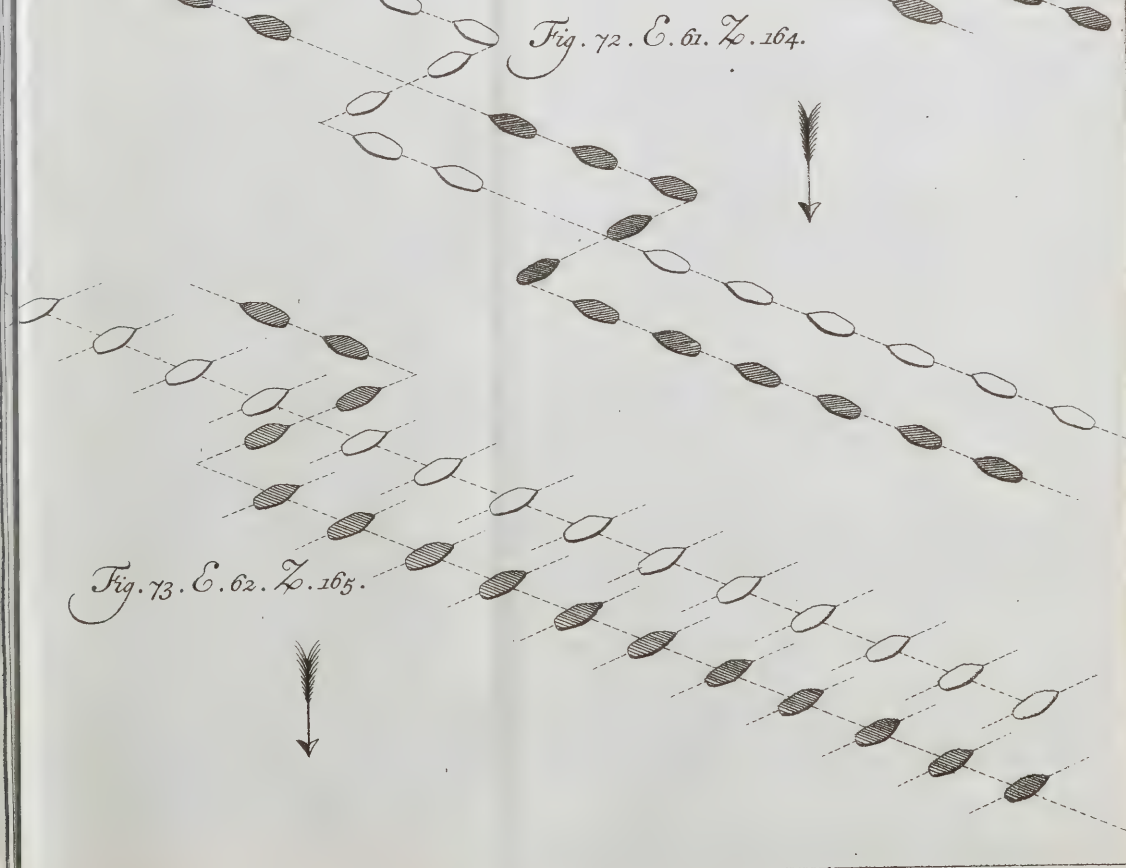 Fig. 72. E. 61. Z. 164.
Fig. 73. E. 62. Z. 165.